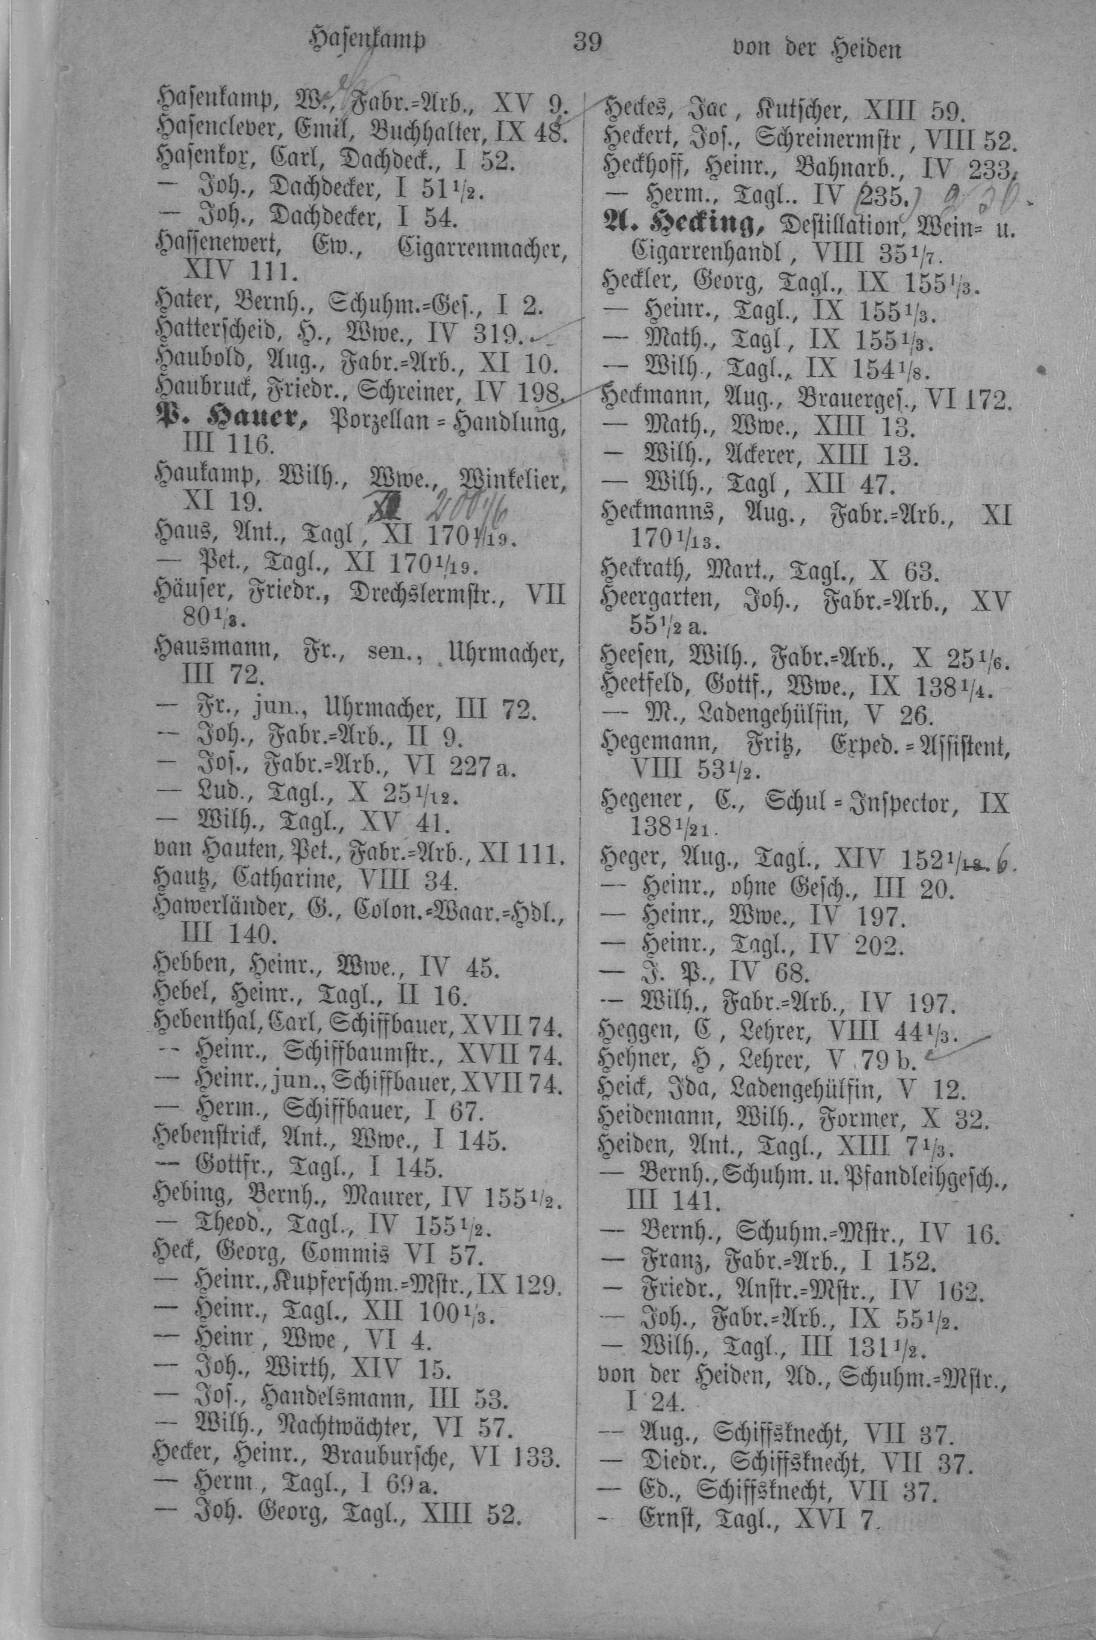 Hasenkamp 39 von der Heiden
Hasenkamp, W., Fabr.=Arb., XV 9.
Hasenclever, Emil, Buchhalter, IX 48.
Hasenkox, Carl, Dachdeck., I 52.
— Joh., Dachdecker, I 51 1/2.
— Joh., Dachdecker, I 54.
Hassenewert, Ew., Cigarrenmacher,
XIV 111.
Hater, Bernh., Schuhm.=Ges., I 2.
Hatterscheid, H., Wwe., IV 319.
Haubold, Aug., Fabr.=Arb., XI 10.
Haubruck, Friedr., Schreiner, IV 198.
P. Hauer, Porzellan=Handlung,
III 116.
Haukamp, Wilh., Wwe., Winkelier,
XI 19.
Haus, Ant., Tagl, XI 170 1/19.
— Pet., Tagl., XI 170 1/19.
Häuser, Friedr., Drechslermstr., VII
80 1/3.
Hausmann, Fr., sen., Uhrmacher,
III 72.
— Fr., jun., Uhrmacher, III 72.
— Joh., Fabr.=Arb., II 9.
— Jos., Fabr.=Arb., VI 227 a.
— Lud., Tagl., X 25 1/12.
— Wilh., Tagl., XV 41.
van Hauten, Pet., Fabr.=Arb., XI 111.
Hautz, Catharine, VIII 34.
Hawerländer, G., Colon.=Waar.=Hdl.,
III 140.
Hebben, Heinr., Wwe., IV 45.
Hebel, Heinr., Tagl., II 16.
Hebenthal, Carl, Schiffbauer, XVII 74.
— Heinr., Schiffbaumstr., XVII 74.
— Heinr., jun., Schiffbauer, XVII 74.
— Herm., Schiffbauer, I 67.
Hebenstrick, Ant., Wwe., I 145.
— Gottfr., Tagl., I 145.
Hebing, Bernh., Maurer, IV 155 1/2.
— Theod., Tagl., IV 155 1/2.
Heck, Georg, Commis VI 57.
— Heinr., Kupferschm.=Mstr., IX 129.
— Heinr., Tagl., XII 100 1/3.
— Heinr, Wwe, VI 4.
— Joh., Wirth, XIV 15.
— Jos., Handelsmann, III 53.
— Wilh., Nachtwächter, VI 57.
Hecker, Heinr., Braubursche, VI 133.
— Herm, Tagl., I 69 a.
— Joh. Georg, Tagl., XIII 52.
Heckes, Jac, Kutscher, XIII 59.
Heckert, Jos., Schreinermstr, VIII 52.
Heckhoff, Heinr., Bahnarb., IV 233.
— Herm., Tagl.. IV (235.) 236.
A. Hecking, Destillation, Wein= u.
Cigarrenhandl, VIII 35 1/7.
Heckler, Georg, Tagl., IX 155 1/3.
— Heinr., Tagl., IX 155 1/3.
— Math., Tagl, IX 155 1/3.
— Wilh., Tagl., IX 154 1/8.
Heckmann, Aug., Brauerges., VI 172.
— Math., Wwe., XIII 13.
— Wilh., Ackerer, XIII 13.
— Wilh., Tagl, XII 47.
Heckmanns, Aug., Fabr.=Arb., XI
170 1/13.
Heckrath, Mart., Tagl., X 63.
Heergarten, Joh., Fabr.=Arb., XV
55 1/2 a.
Heesen, Wilh., Fabr.=Arb., X 25 1/6.
Heetfeld, Gottf., Wwe., IX 138 1/4.
— M., Ladengehülfin, V 26.
Hegemann, Fritz, Exped.=Assistent,
VIII 53 1/2.
Hegener, C., Schul=Inspector, IX
138 1/21.
Heger, Aug., Tagl., XIV 152 1/18. 6.
— Heinr., ohne Gesch., III 20.
— Heinr., Wwe., IV 197.
— Heinr., Tagl., IV 202.
— J. P., IV 68.
— Wilh., Fabr.=Arb., IV 197.
Heggen, C, Lehrer, VIII 44 1/3.
Hehner, H, Lehrer, V 79 b.
Heick, Ida, Ladengehülfin, V 12.
Heidemann, Wilh., Former, X 32.
Heiden, Ant., Tagl., XIII 7 1/3.
— Bernh., Schuhm. u. Pfandleihgesch.,
III 141.
— Bernh., Schuhm.=Mstr., IV 16.
— Franz, Fabr.=Arb., I 152.
— Friedr., Anstr.=Mstr., IV 162.
— Joh., Fabr.=Arb., IX 55 1/2.
— Wilh., Tagl., III 131 1/2.
von der Heiden, Ad., Schuhm.=Mstr.,
I 24.
— Aug., Schiffsknecht, VII 37.
— Diedr., Schiffsknecht, VII 37.
— Ed., Schiffsknecht, VII 37.
- Ernst, Tagl., XVI 7.